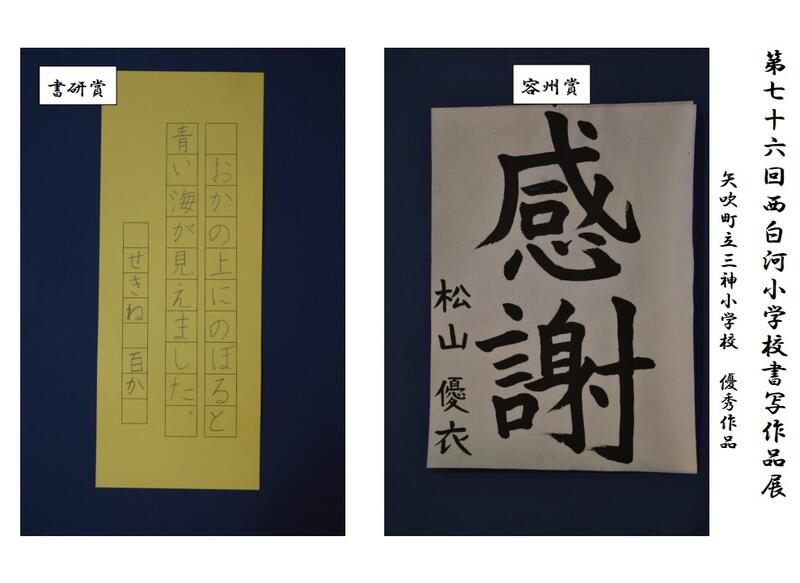 第七十六回西白河小学校書写作品展
矢吹町立三神小学校　優秀作品
容州賞
感謝
松山　優衣
書研賞
おかの上にのぼると
青い海が見えました。
せきね　百か